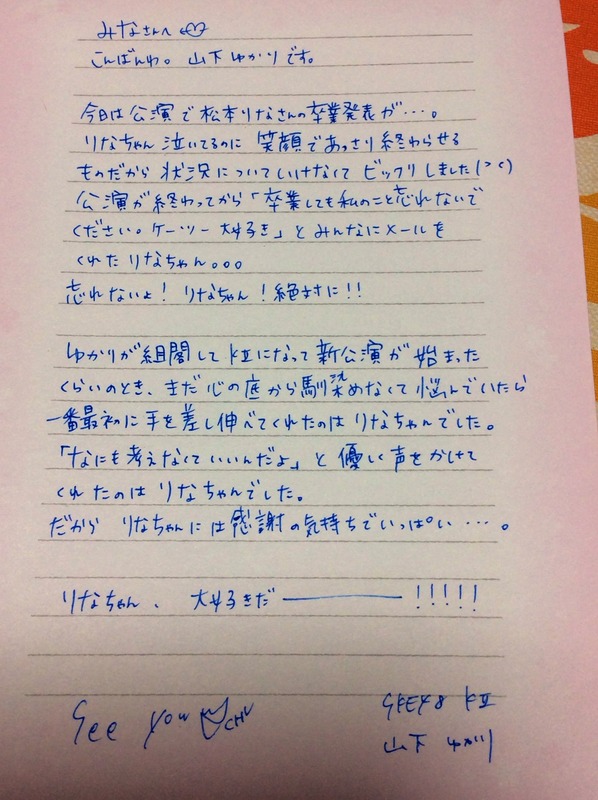 みなさんへ♡
こんばんわ。山下ゆかりです。
今日は公演で松本りなさんの卒業発表が…。
りなちゃん泣いてるのに 笑顔であっさり終わらせる
ものだから 状況についていけなくて ビックリしました(><)
公演が終わってから「卒業しても私のこと忘れないで
ください。ケーツー大好き」とみんなにメールを
くれたりなちゃん。。。
忘れないよ！りなちゃん！絶対に!!
ゆかりが組閣してKⅡになって新公演が始まった
くらいのとき、まだ心の底から馴染めなくて悩んでいたら
一番最初に手を差し伸べてくれたのはりなちゃんでした。
「なにも考えなくていいんだよ」と優しく声をかけて
くれたのはりなちゃんでした。
だから りなちゃんには感謝の気持ちでいっぱい…。
りなちゃん、 大好きだ――――!!!!!
See you CHU
SKE48 KⅡ
山下 ゆかり